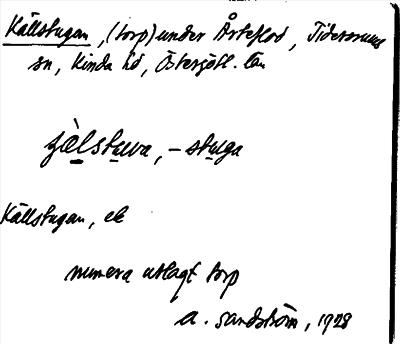 Källstugan, (torp) under Årteflod, Tidersrums
sn, Kinda hd, Östergötl. län
çὰlstuva, -stuga
Källstugan, ek
numera utlagt torp
A. Sandström, 1928